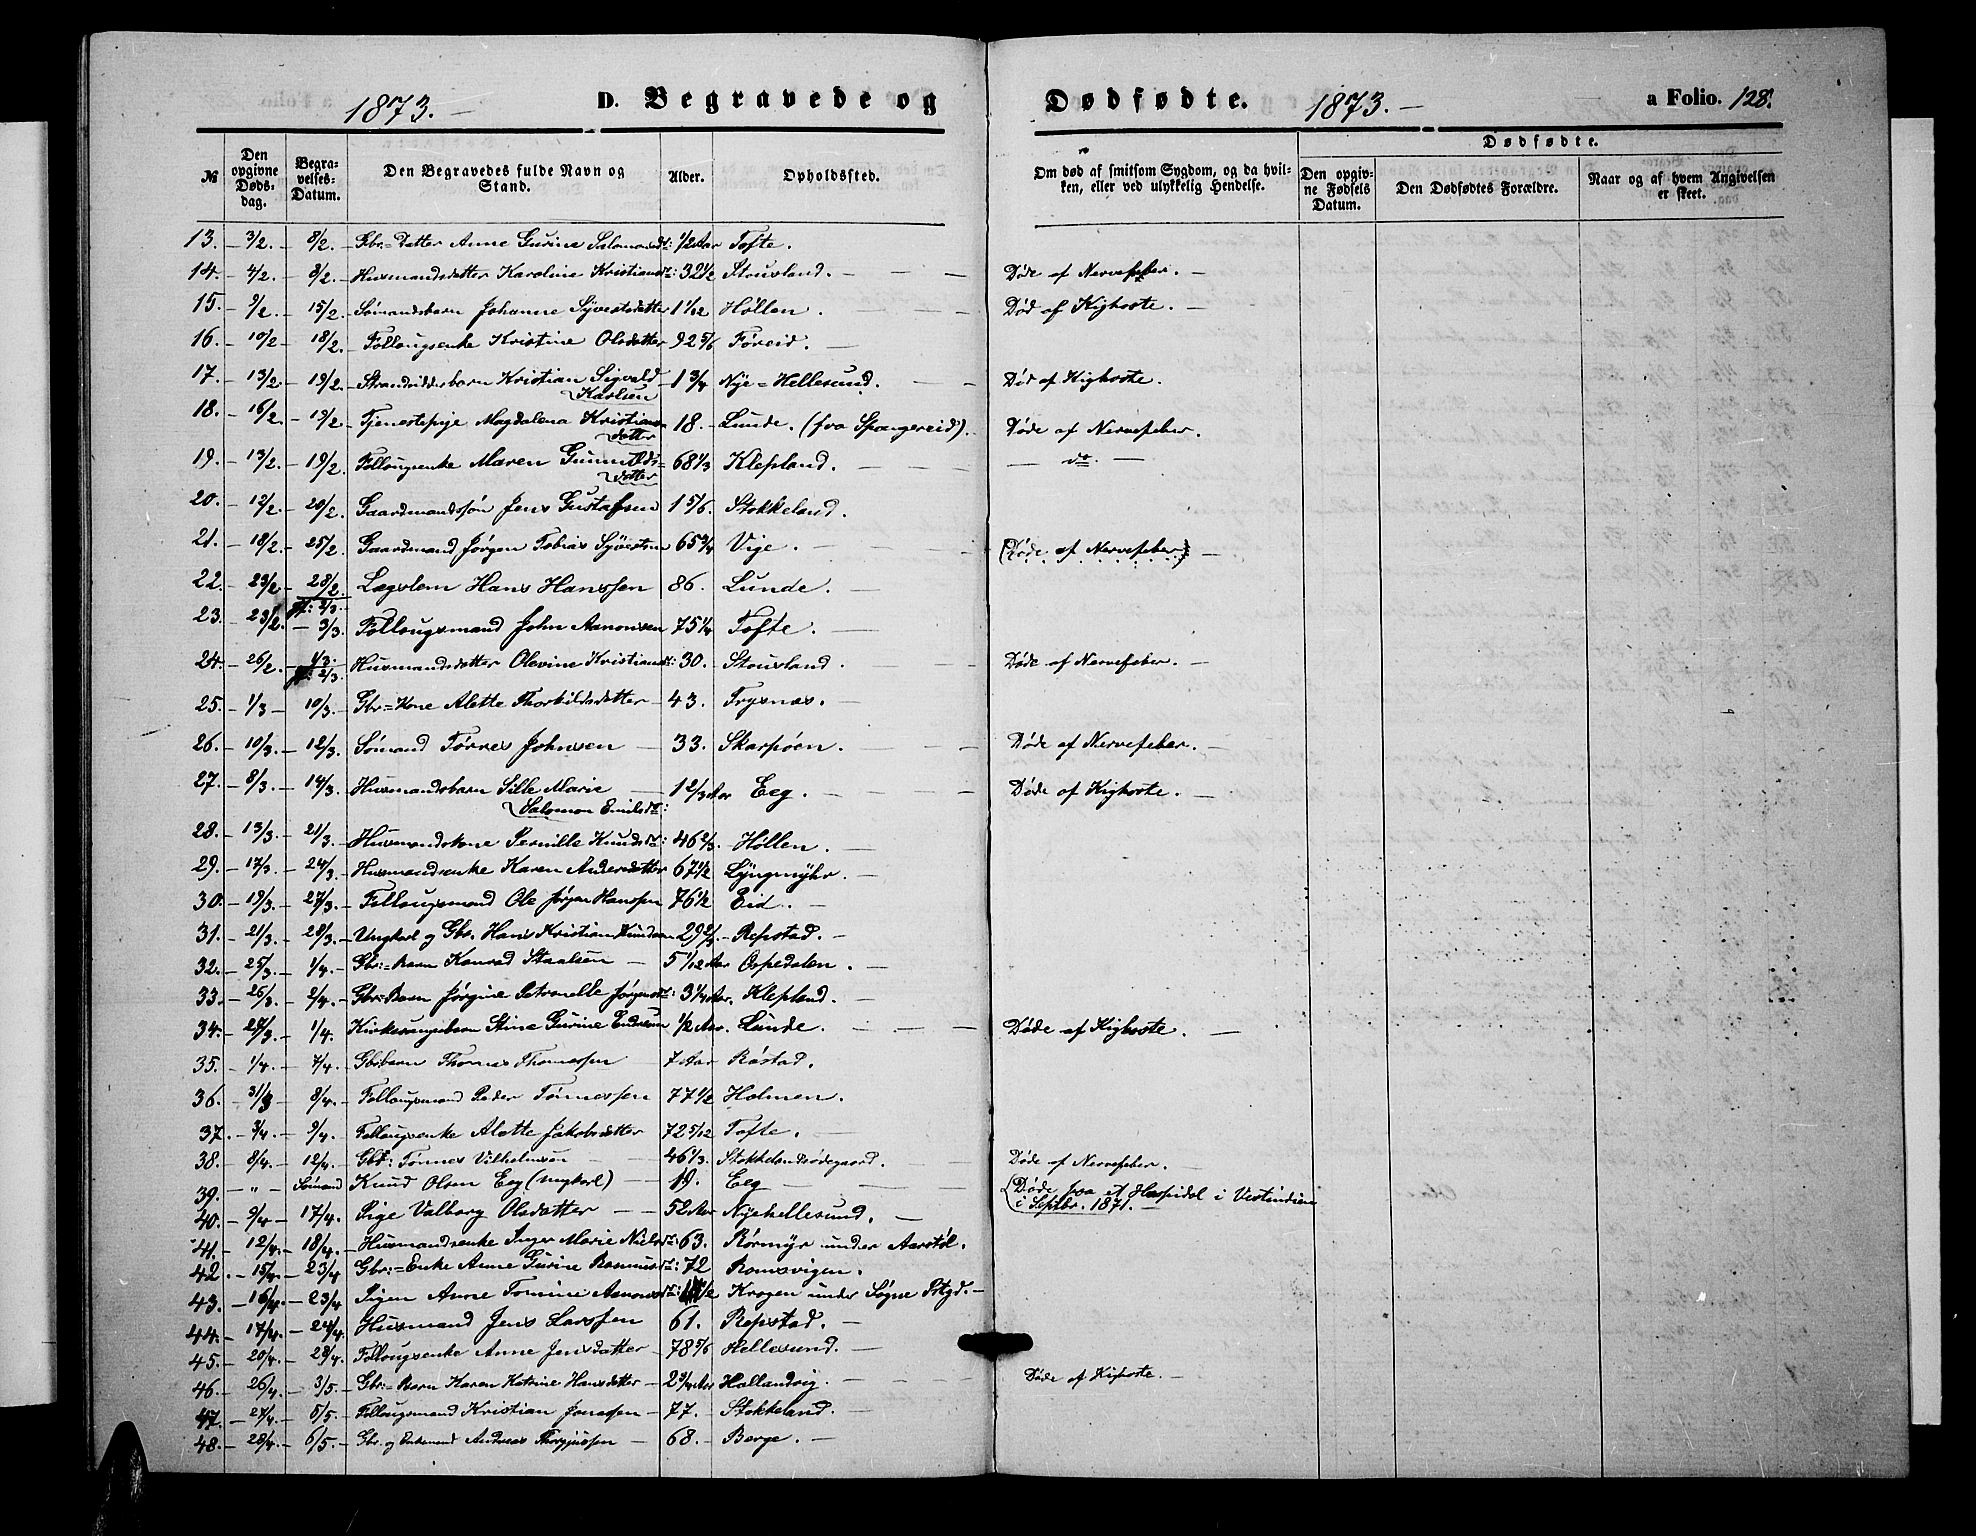 1873. — D. Begravede og Dødfødte. 1873. — a Folio. 128.
№ Den opgivne Dødsdag. Begravelses-Datum. Den Begravedes fulde Navn og Stand. Alder. Opholdssted. Om død af smitsom Sygdom, og da hvilken, eller ved ulykkelig Hendelse. Dødfødte. Den opgivne Fødsels Datum. Den Dødfødtes Forældre. Naar og af hvem Angivelsen er skeet.
13. — 3/2. — 8/2. — Gbr=Datter Anne Gurine Salomonsdt: 1/2 Aar Tofte.
14. — 4/2. — 8/2. — Husmandsdatter Karoline Kristiansdt: 32 1/2 Stousland. — Døde af Nervefeber. —
15. — 9/2 — 15/2. — Sømandsbarn Johanne Syvertsdatter 1 1/12 Høllen. — Død af Kighoste. —
16. — 10/2 — 18/2. — Føllougsenke Kristine Olsdatter 92 5/6 Føreid. —
17. — 13/2. — 19/2. — Strandsidderbarn Kristian Sigvald Karlsen — 1 3/4 Nye=Hellesund. — Død af Kighoste.
18. — 16/2. — 19/2. — Tjenestepige Magdalena Kristiansdatter 18. — Lunde. (fra Spangereid). Døde af Nervefeber.
19. — 13/2. — 19/2. — Føllougsenke Maren Gunnuldsdatter — 68 1/3 Klepland. — do. —
20. — 12/2. — 20/2. — Gaardmandssøn Jens Gustafsen 1 5/6. Stokkeland.
21. — 18/2. — 25/2. — Gaardmand Jørgen Tobias Syvertsen 65 3/4 Vige. — (Døde af Nervefeber) —
22. — 23/2. — 28/2. gf: 2/3. Lægslem Hans Hanssen 86. Lunde. —
23. — 23/2. — 3/3. Føllougsmand John Aanonsen 75 1/4 Tofte. —
24. — 26/2. — 1/3. gf: 2/3. Husmandsdatter Olevine Kristiansdt: 30. Stousland. — Døde af Nervefeber. —
25. — 1/3 — 10/3. — Gbr=Kone Alette Thorkildsdatter — 43. Trysnes. —
26. — 10/3. — 12/3. — Sømand Tørres Johnsen — 33. Skarpøen. — Døde af Nervefeber. —
27. — 8/3. — 14/3. — Husmandsbarn Sille Marie Salomon Emilsdt: — 1 2/3 Aar Eeg. — Døde af Kighoste. —
28. — 13/3. — 21/3. — Husmandskone Pernille Knudsdt: 46 2/3. Høllen. —
29. — 17/3. — 24/3. — Husmandsenke Karen Andersdatter 67 1/2 Lyngmyhr. —
30. — 19/3. — 27/3. — Føllougsmand Ole Jørgen Hanssen 76 1/2 Eid. —
31. — 21/3. — 28/3. — Ungkarl og Gbr. Hans Kristian Knudsen 29 2/3. — Repstad. —
32. — 25/3. — 1/4. — Gbr:=Barn Konrad Staalsen — 5 1/12 Aar Ospedalen. —
33. — 26/3. — 2/4. — Gbr=Barn Jørgine Petronelle Jørgensdt: 3 1/4 Aar. Klepland. —
34. — 28/3. — 1/4. — Kirkesangerbarn Stine Gurine Endresen 1/2 Aar. Lunde. — Døde af Kighoste. —
35. — 1/4. — 7/4. — Gbr:barn Thomas Thomassen 7 Aar Røstad.
36. — 31/3 — 8/4. — Føllougsmand Peder Tønnessen 77 1/2 Holmen.
37. — 3/4. — 9/4. — Føllougsenke Alette Jakobsdatter 72 5/12 Tofte. —
38. — 8/4. — 12/4. — Gbr: Tønnes Vilhelmsen — 46 1/3. Stokkelandsødegaard. Døde af Nervefeber. —
39. — " — Sømand Knud Olsen Eeg (ungkarl) — 19. Eeg — (Døde paa et Hospidal i Vestindien i Septbr. 1871. —
40. — 9/4 — 17/4. — Pige Valborg Olsdatter — — 52 Aar Nyehellesund. —
41. — 12/4. — 18/4. — Husmandsenke Inger Marie Nielsdt: 63. Rørmyr under Aarstøl.
42. — 15/4. — 23/4 — Gbr:=Enke Anne Gurine Rasmusdt: 72 Romsvigen.
43. — 16/4. — 23/4 — Pigen Anne Tomine Aanonsdt: 1/2 Kragen under Søgne Prtgd. —
44. — 17/4. — 24/4. — Husmand Jens Larssen 61. Repstad. —
45. — 20/4. — 28/4. — Føllougsenke Anne Jensdatter — 78 5/6 Hellesund. —
46. — 26/4. — 3/5. — Gbr:=Barn Karen Katrine Hansdatter — 2 3/4 Aar Hallandvig. — Døde af Kighoste. —
47. — 27/4. — 5/5. — Føllougsmand Kristian Jonassen — 77. Stokkeland. —
48. — 28/4. — 6/5. — Gbr. og Enkemand Andreas Thorjussen — 68. — Berge. —